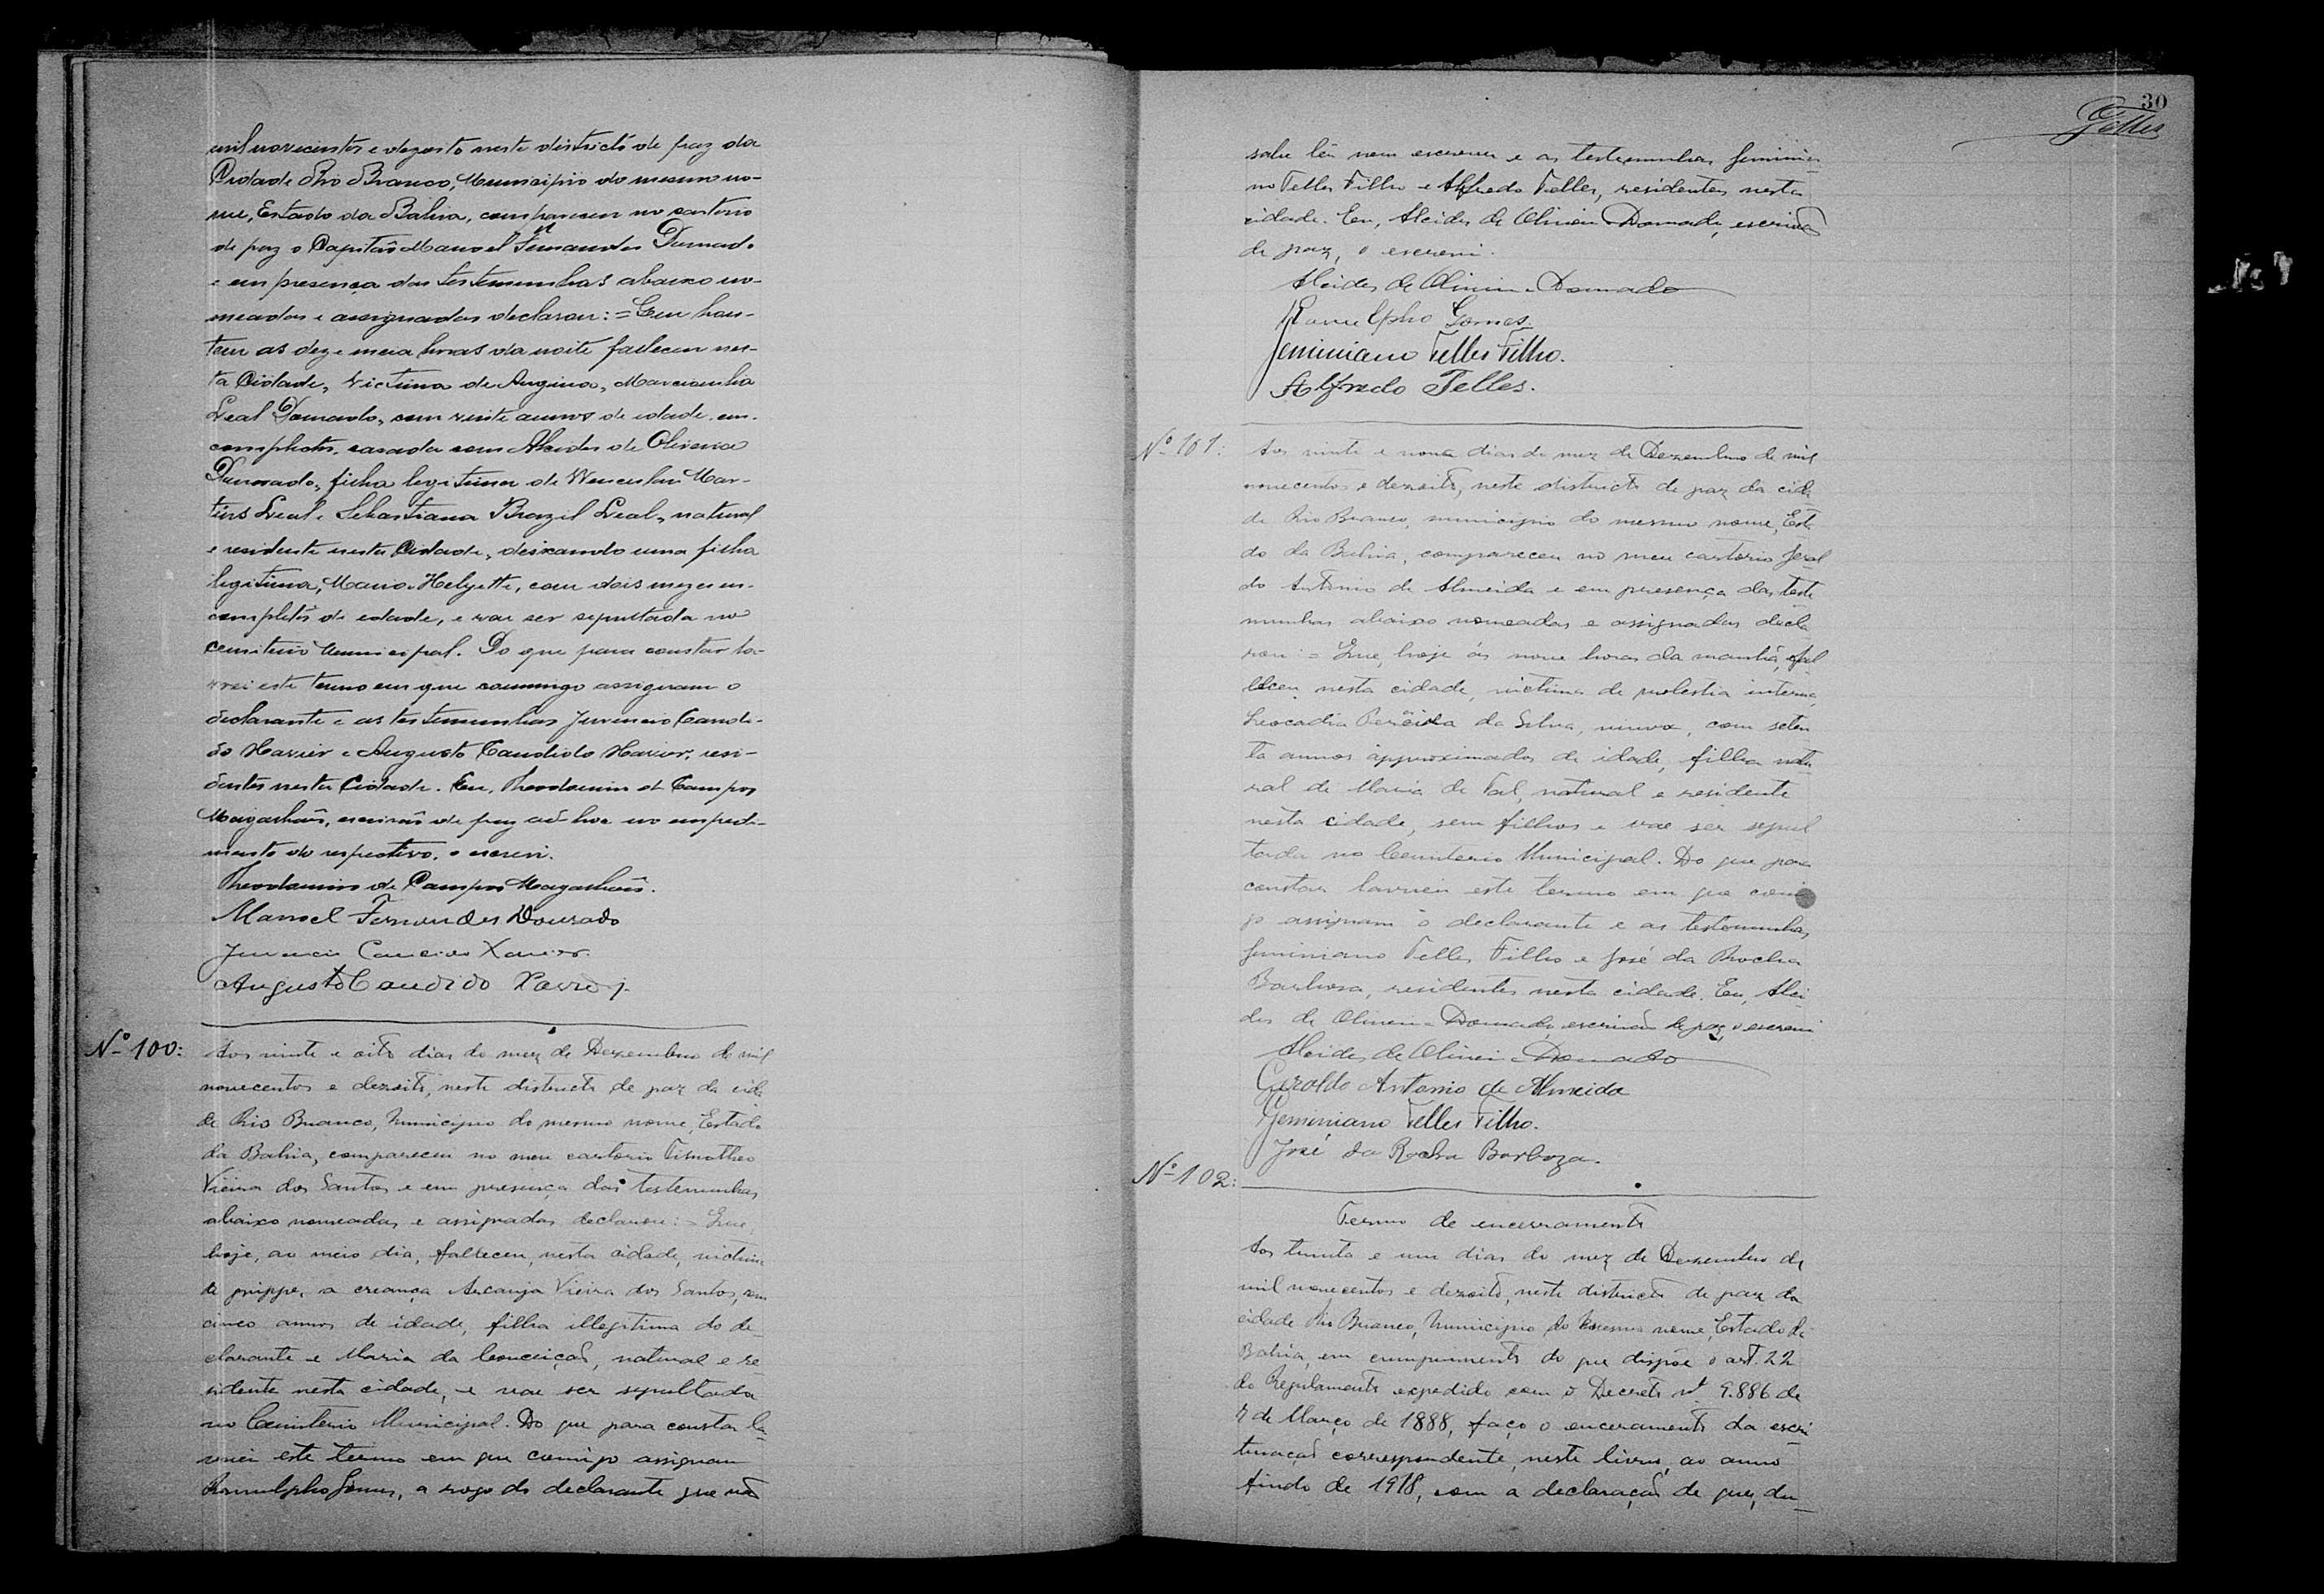 mil novecentos e dezoito neste districto de paz da
Cidade Rio Branco, Municipio do mesmo no-
me, Estado da Bahia, compareceu no cartorio
de paz o Capitaõ Manoel Fernandes Dourado
e em presença das testemunhas abaixo no-
meadas e assignadas declarou: = Que hon-
tem as dez e meia horas da noite falleceu nes-
ta Cidade, victima de Angina,
Leal Dourado, com vinte annos de edade in-
completos, casada com Alcides de Oliveira
Dourado, filha legitima de Wenceslau Mar-
tins Leal e Sebastiana Brazil Leal, natural
e residente nesta Cidade, deixando uma filha
legitima, Maria Helyette, com dois mezes in-
completos de edade, e vae ser sepultada no
cemiterio Municipal. Do que para constar la-
vrei este termo em que commigo assignam o
declarante e as testemunhas Juvencio Candi-
do Xavier e Augusto Candido Xavier, resi-
dentes nesta Cidade. Eu, Theodomiro de Campos
Magalhaẽs, escrivaõ de paz ad-hoc no impedi-
mento do respectivo, o escrevi.
Theodomiro de Campos Magalhaẽs.
Manoel Fernandes Dourado
Juvencio Candido Xavier.
Augusto Candido Xavier
Nº 100:
Aos vinte e oito dias do mez de Dezembro de mil
novecentos e dezoito, neste districto de paz da cida
de Rio Branco, Municipio do mesmo nome, Estado
da Bahia, compareceu no meu cartorio Timotheo
Vieira dos Santos e em presença das testemunhas
abaixo nomeadas e assignadas declarou: = Que,
hoje, ao meio dia, falleceu, nesta cidade, victima
de grippe, a creança Arcanja Vieira dos Santos, com
cinco annos de idade, filha illegitima do de-
clarante e Maria da Conceiçaõ, natural e re
sidente nesta cidade, e vae ser sepultada
no Cemiterio Municipal. Do que para constar la-
vrei este termo em que comigo assignam
Ranulpho Gomes, a rogo do declarante que naõ
30
Telles
sabe lêr nem escrever e as testemunhas Geminia-
no Telles Filho e Alfredo Telles, residentes nesta
cidade. Eu, Alcides de Oliveira Dourado, escrivaõ
de paz, o escrevi.
Alcides de Oliveira Dourado
Ranulpho Gomes.
Geminiano Telles Filho.
Alfredo Telles.
Nº 101:
Aos vinte e nove dias do mez de Dezembro de mil
novecentos e dezoito, neste districto de paz da cida
de Rio Branco, municipio do mesmo nome, Esta
do da Bahia, compareceu no meu cartorio Geral
do Antonio de Almeida e em presença das teste
munhas abaixo nomeadas e assignadas decla
rou: = Que, hoje ás nove horas da manhã, fal
leceu nesta cidade, victima de molestia interna,
Leocadia Pereira da Silva, viuva, com seten
ta annos approximados de idade, filha natu
ral de Maria de Tal, natural e residente
nesta cidade, sem filhos e vae ser sepul
tada no Cemiterio Municipal. Do que para
constar lavrei este termo em que comi
go assignam o declarante e as testemunhas
Geminiano Telles Filho e José da Rocha
Barbosa, residentes nesta cidade. Eu, Alci-
des de Oliveira Dourado, escrivaõ de paz, o escrevi
Alcides de Oliveira Dourado
Geraldo Antonio de Almeida
Geminiano Telles Filho.
José da Rocha Barboza.
Nº 102:
Termo de encerramento
Aos trinta e um dias do mez de Dezembro de
mil novecentos e dezoito, neste districto de paz da
cidade Rio Branco, Municipio do mesmo nome, Estado da
Bahia, em cumprimento do que dispõe o art. 22
do Regulamento expedido com o Decreto nº 9.886 de
7 de Março de 1888, faço o encerramento da escri
turaçaõ correspondente, neste livro, ao anno
findo de 1918, com a declaraçaõ de que, du-